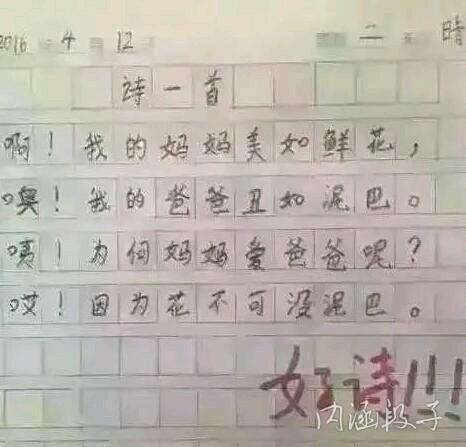 2016 4 12 二 晴
诗一首
啊！我的妈妈美如鲜花，
噢！我的爸爸丑如泥巴。
咦！为何妈妈爱爸爸呢？
哎！因为花不可没泥巴。
好诗!!!
内涵段子